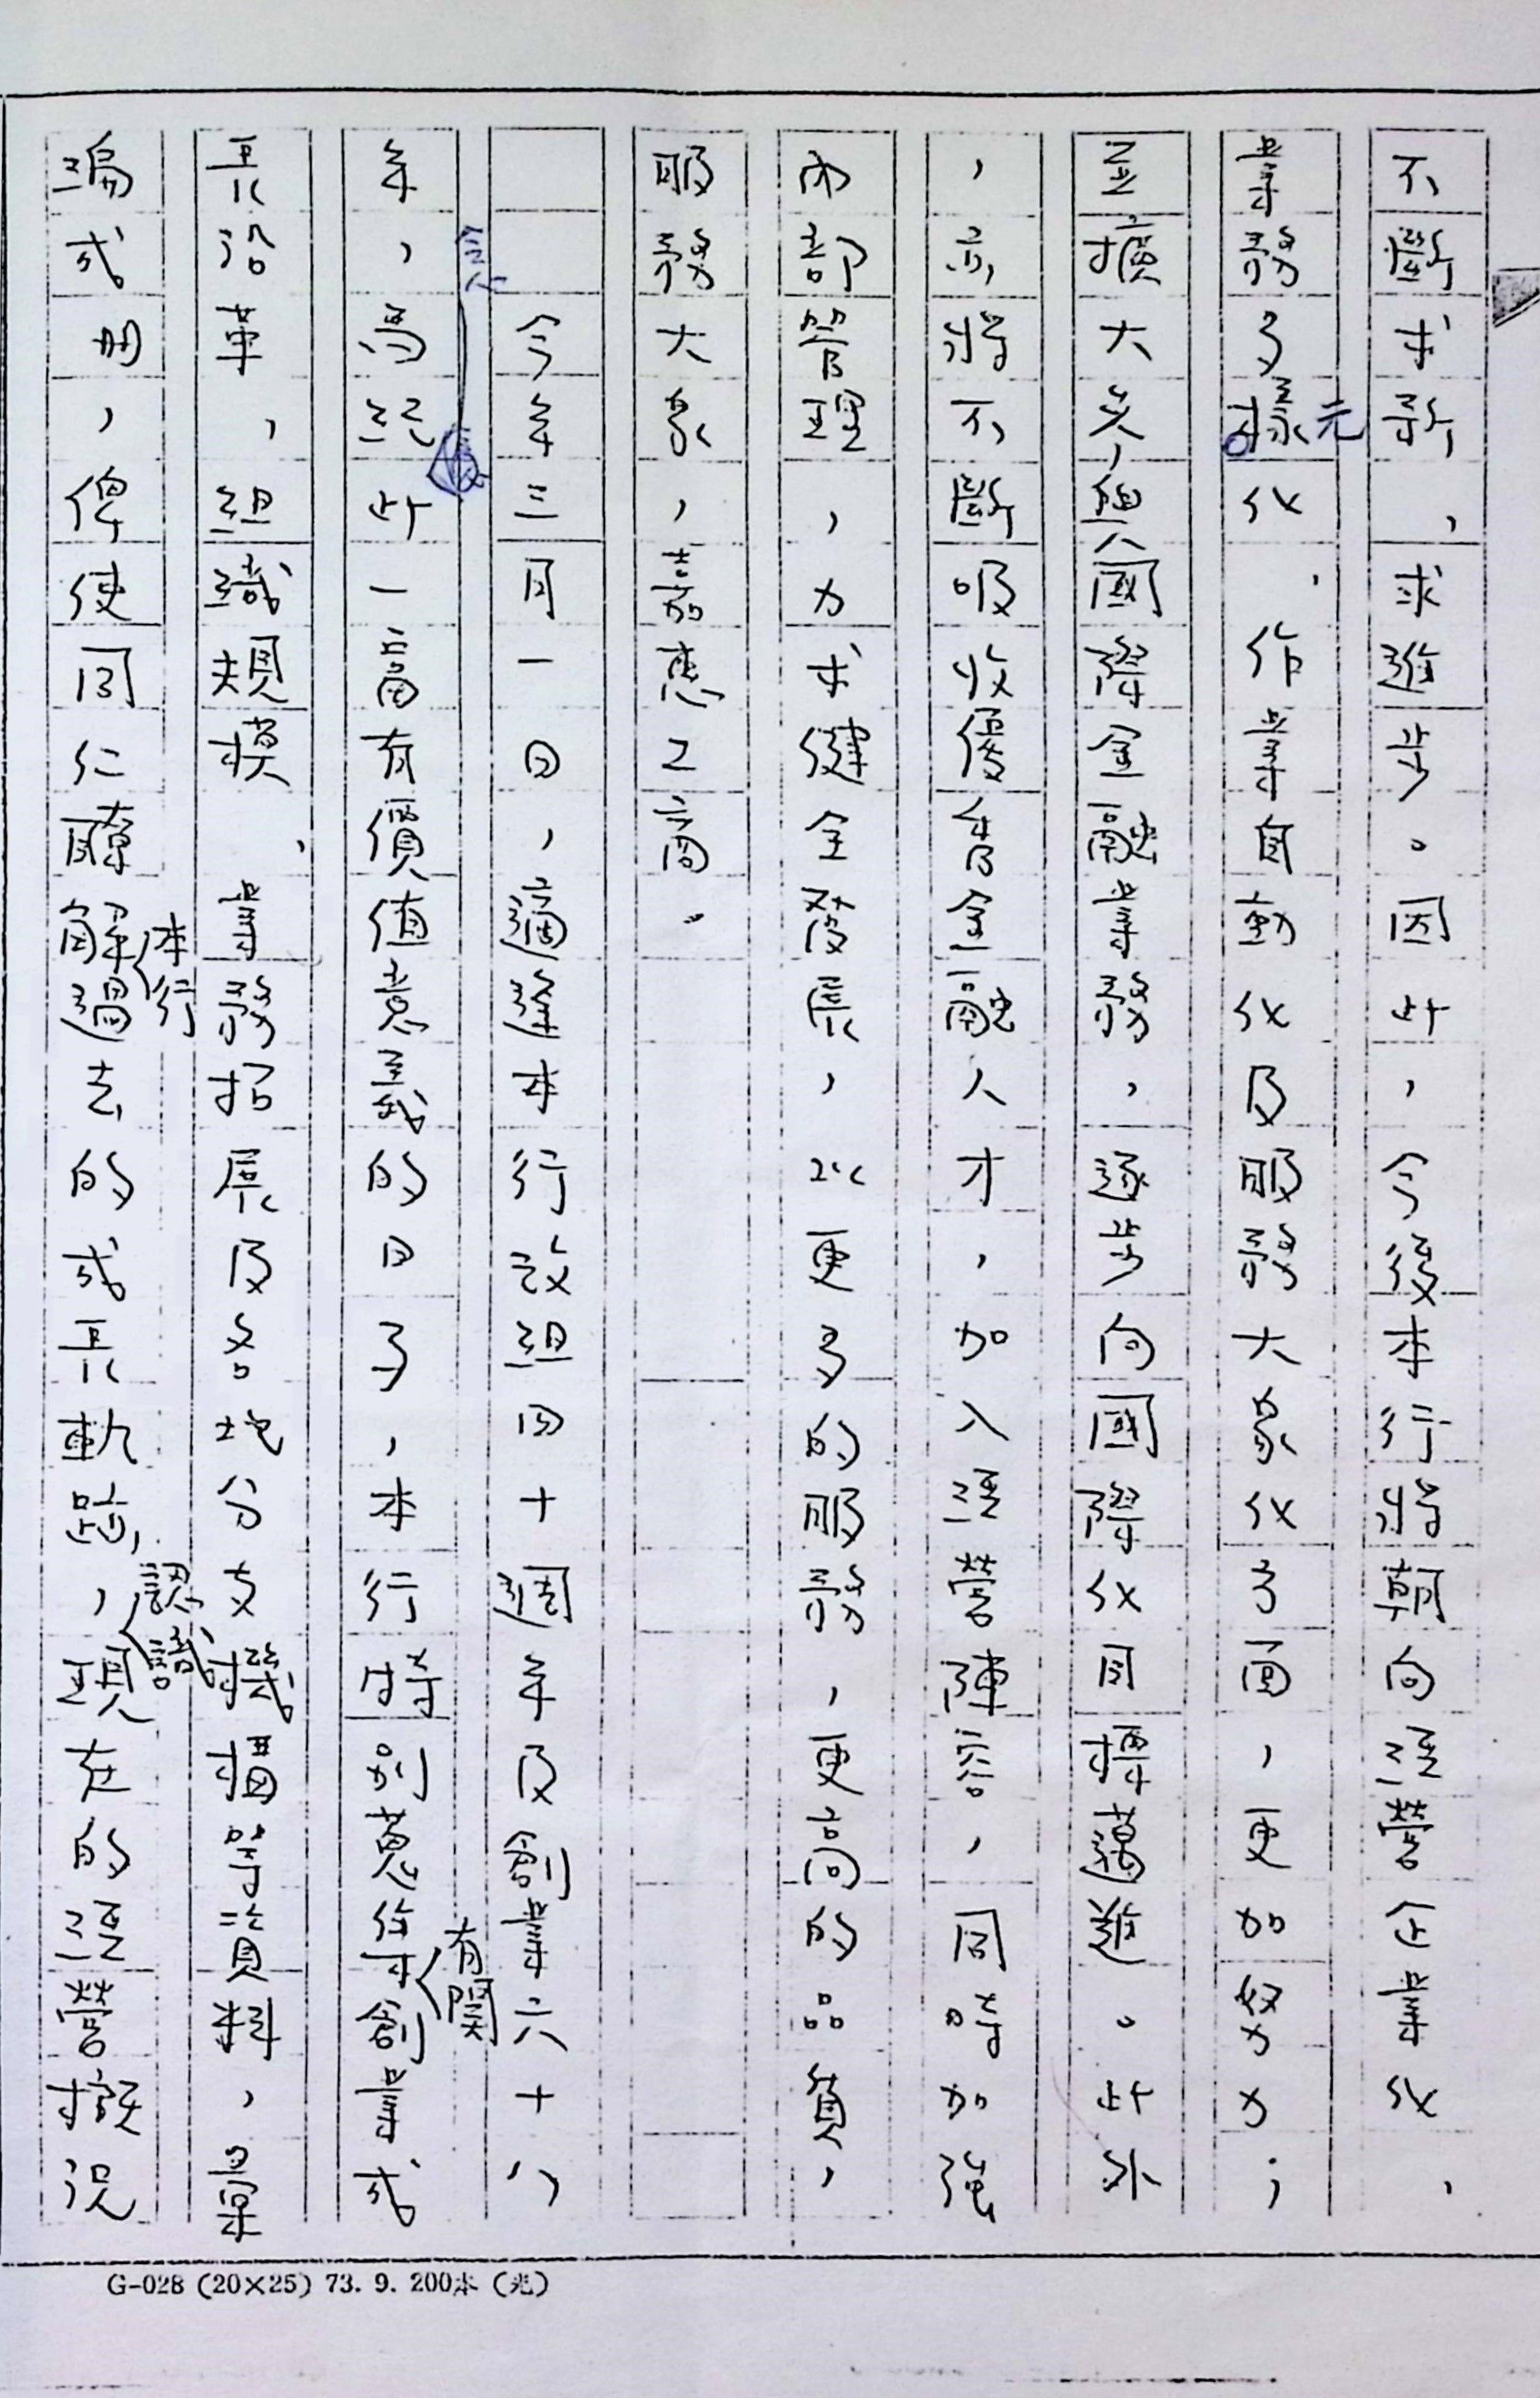 不斷求新，求進步。因此，今後本行將朝向經營企業化，
業務多元化，作業自動化及服務大眾化方面，更加努力；
並擴大參與國際金融業務，逐步向國際化目標邁進。此外
，亦將不斷吸收優秀金融人才，加入經營陣容，同時加強
內部管理，力求健全發展，以更多的服務，更高的品質，
服務大眾，嘉惠工商。
今年三月一日，適逢本行改組四十週年及創業六十八
年，為紀念此一富有價值意義的日子，本行特別蒐集有關創業或
其沿革，組織規模，業務拓展及各地分支機構等資料，彙
編成冊，俾使同仁瞭解本行過去的成長軌跡，認識現在的經營概況
G-028 (20×25) 73. 9. 200本 (光)